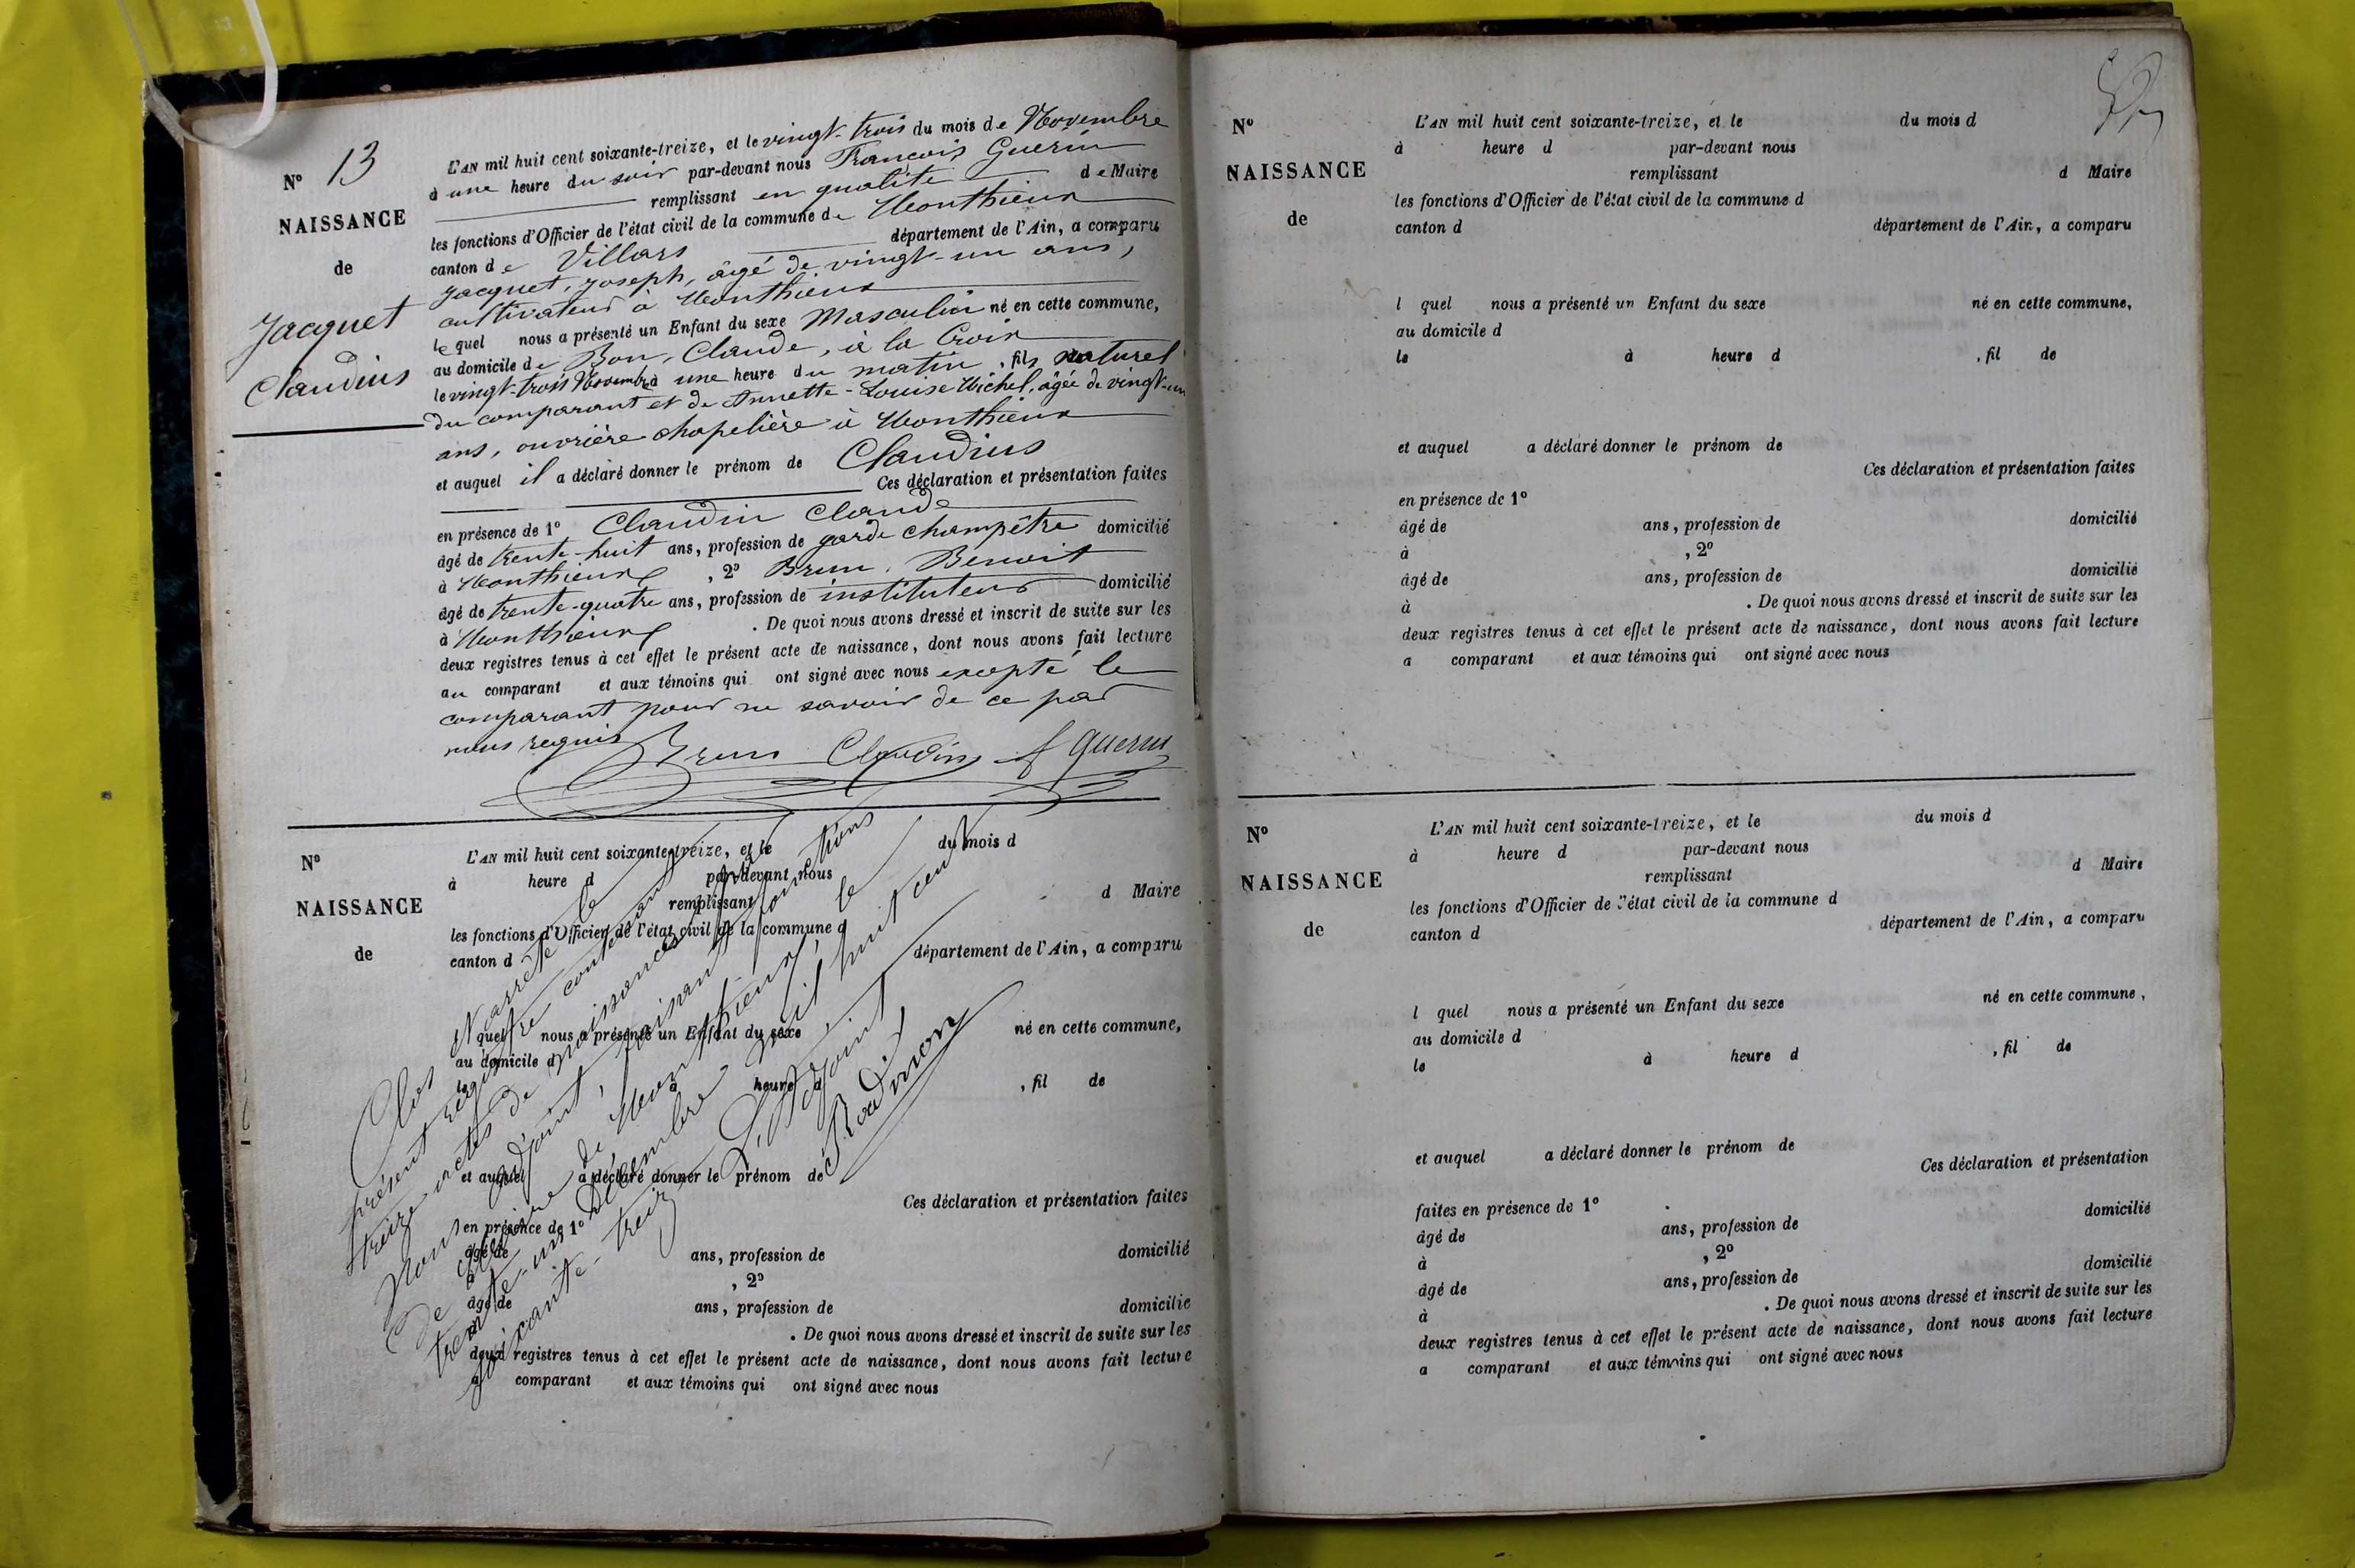 N° 13
NAISSANCE
de
Jacquet
Claudius
L'AN mil huit cent soixante-treize, et le vingt-trois du mois de Novembre
à une heure du soir par-devant nous François Guerin
remplissant en qualité de Maire
les fonctions d'Officier de l'état civil de la commune de Monthieux
canton de Villars département de l'Ain, a comparu
Jacquet, Joseph, âgé de vingt-un ans,
cultivateur à Monthieux
lequel nous a présenté un Enfant du sexe Masculin né en cette commune,
au domicile de Bon, Claude, à la Croix
le vingt-trois Novembre à une heure du matin, fils naturel
du comparant et de Annette-Louise Michel, âgée de vingt-un
ans, ouvrière chapelière à Monthieux
et auquel il a déclaré donner le prénom de Claudius
Ces déclaration et présentation faites
en présence de 1° Claudin Claude
âgé de trente-huit ans, profession de garde champêtre domicilié
à Monthieux, 2° Brun, Benoit
âgé de trente-quatre ans, profession de instituteur domicilié
à Monthieux. De quoi nous avons dressé et inscrit de suite sur les
deux registres tenus à cet effet le présent acte de naissance, dont nous avons fait lecture
au comparant et aux témoins qui ont signé avec nous excepté le
comparant pour ne savoir de ce par
nous requis
Brun Claudin f Guerin
N°
NAISSANCE
de
L'AN mil huit cent soixante-treize, et le du mois d
à heure d par-devant nous
remplissant d Maire
les fonctions d'Officier de l'état civil de la commune d
canton d département de l'Ain, a comparu
l quel nous a présenté un Enfant du sexe né en cette commune,
au domicile d
le à heure d , fil de
et auquel a déclaré donner le prénom de
Ces déclaration et présentation faites
en présence de 1°
âgé de ans, profession de domicilié
à , 2°
âgé de ans, profession de domicilié
à . De quoi nous avons dressé et inscrit de suite sur les
deux registres tenus à cet effet le présent acte de naissance, dont nous avons fait lecture
a comparant et aux témoins qui ont signé avec nous
Clos et arrêté le
présent registre contenant
treize actes de naissances par
Nous adjoint, faisant fonctions
de Maire de Monthieux, le
trente-un Décembre mil huit cent
soixante-treize
L'Adjoint
Rodmon
N°
NAISSANCE
de
L'AN mil huit cent soixante-treize, et le du mois d
à heure d par-devant nous
remplissant d Maire
les fonctions d'Officier de l'état civil de la commune d
canton d département de l'Ain, a comparu
l quel nous a présenté un Enfant du sexe né en cette commune,
au domicile d
le à heure d , fil de
et auquel a déclaré donner le prénom de
Ces déclaration et présentation faites
en présence de 1°
âgé de ans, profession de domicilié
à , 2°
âgé de ans, profession de domicilié
à . De quoi nous avons dressé et inscrit de suite sur les
deux registres tenus à cet effet le présent acte de naissance, dont nous avons fait lecture
a comparant et aux témoins qui ont signé avec nous
N°
NAISSANCE
de
L'AN mil huit cent soixante-treize, et le du mois d
à heure d par-devant nous
remplissant d Maire
les fonctions d'Officier de l'état civil de la commune d
canton d département de l'Ain, a comparu
l quel nous a présenté un Enfant du sexe né en cette commune,
au domicile d
le à heure d , fil de
et auquel a déclaré donner le prénom de
Ces déclaration et présentation
faites en présence de 1°
âgé de ans, profession de domicilié
à , 2°
âgé de ans, profession de domicilié
à . De quoi nous avons dressé et inscrit de suite sur les
deux registres tenus à cet effet le présent acte de naissance, dont nous avons fait lecture
a comparant et aux témoins qui ont signé avec nous